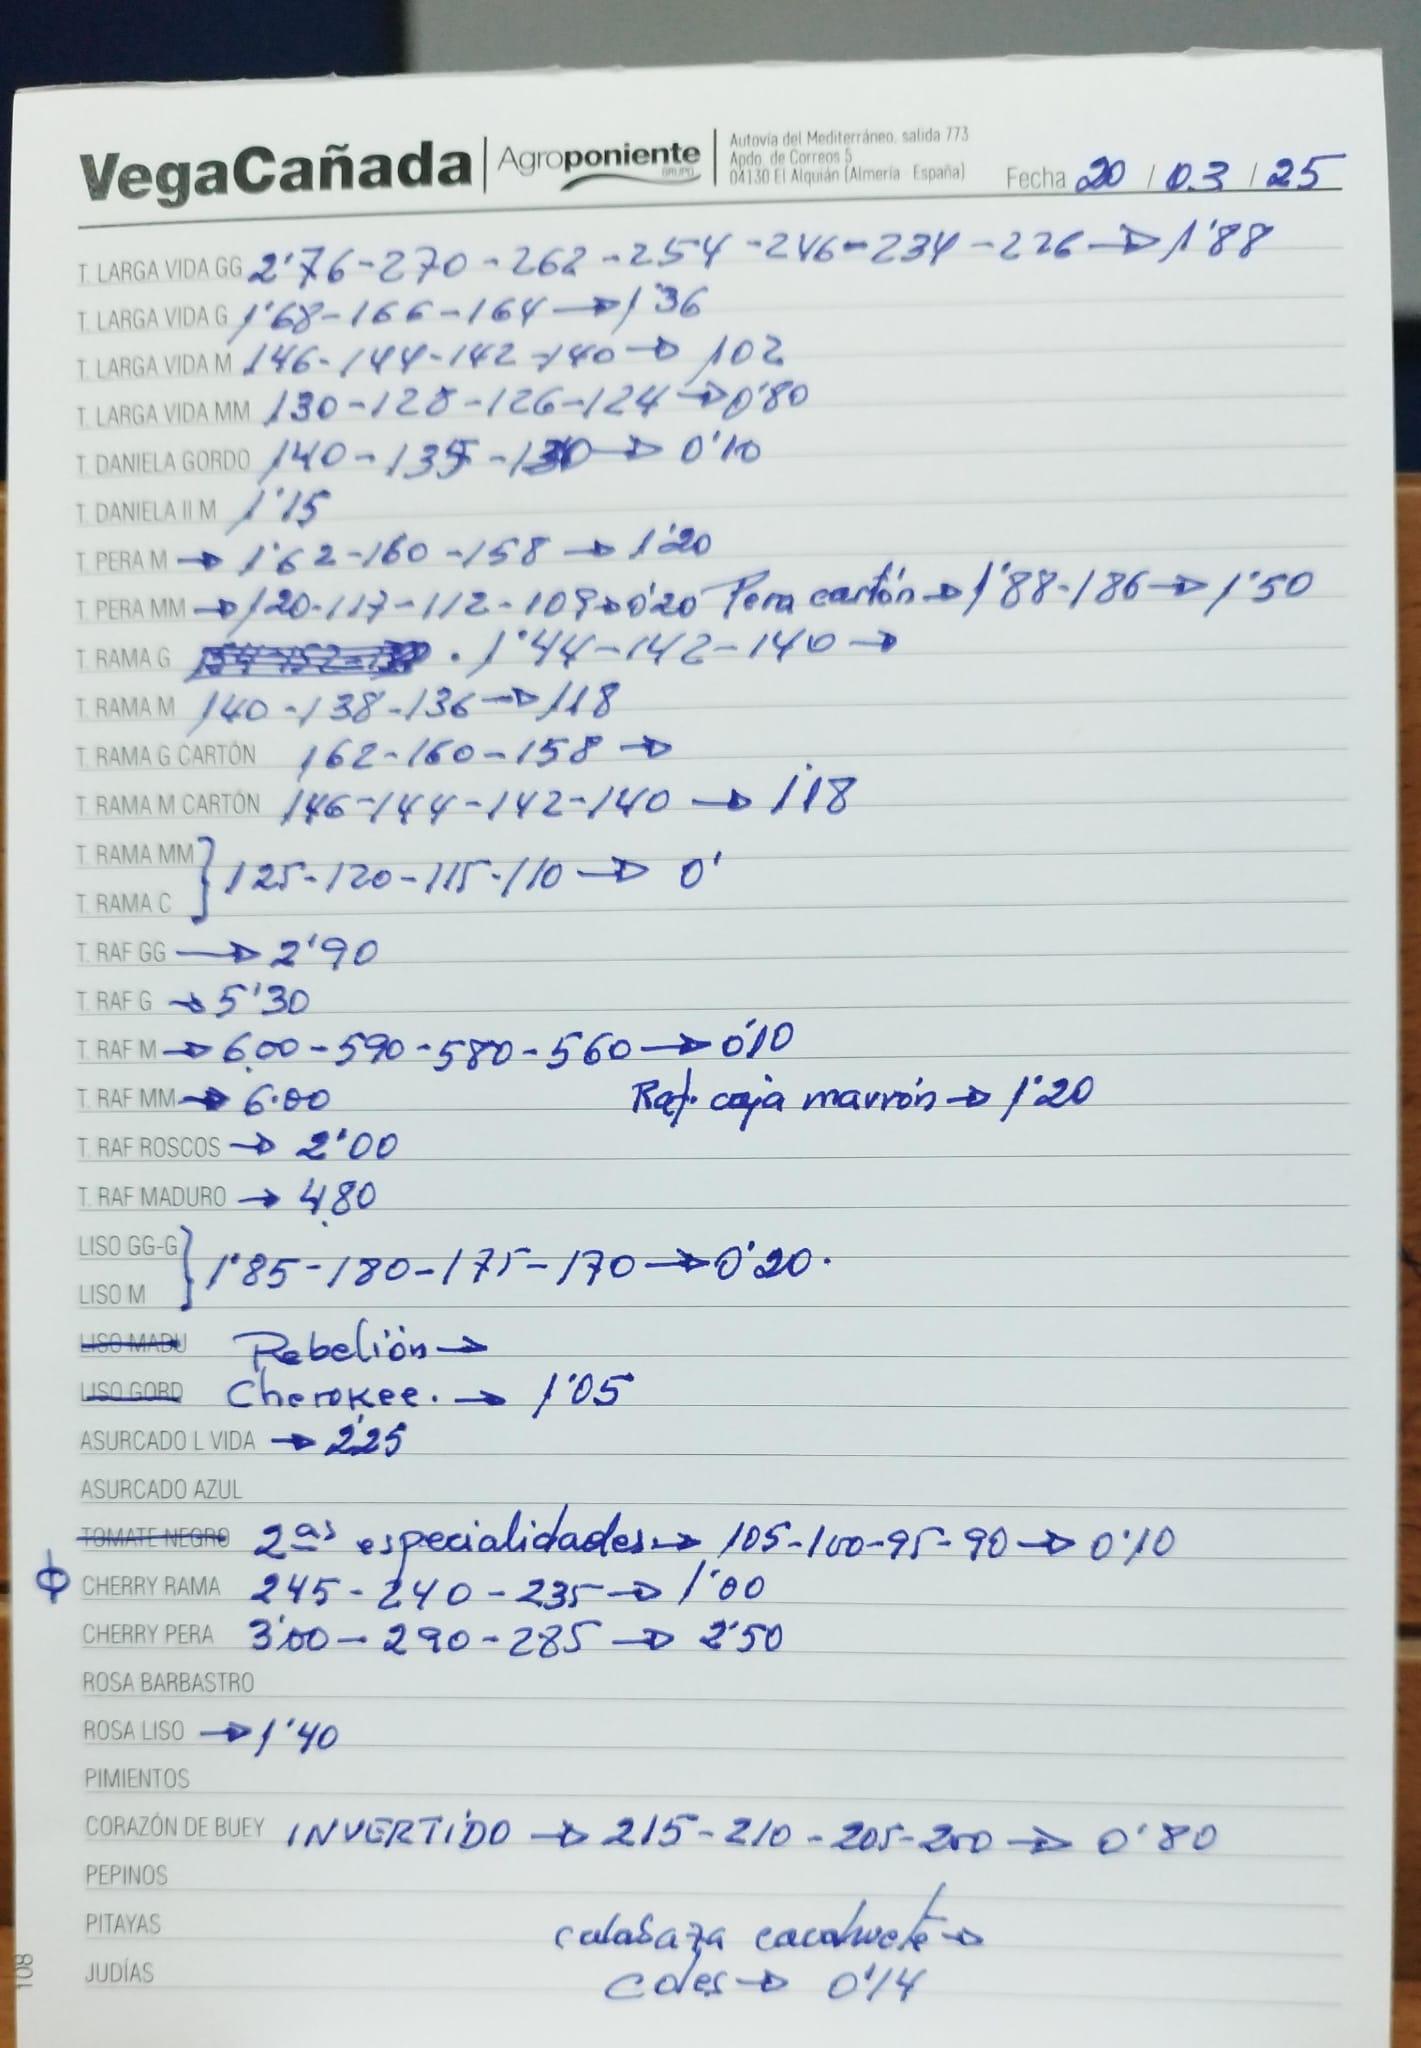 VegaCañada Agroponiente GRUPO
Autovía del Mediterráneo, salida 773
Apdo. de Correos 5
04130 El Alquián (Almería España)
Fecha 20 / 03 / 25
T. LARGA VIDA GG 2'76-270-262-254-246-234-226→1'88
T. LARGA VIDA G 1'68-166-164→1'36
T. LARGA VIDA M 146-144-142-140→102
T. LARGA VIDA MM 130-128-126-124→0'80
T. DANIELA GORDO 140-135-130→0'10
T. DANIELA II M 1'15
T. PERA M→1'62-160-158→1'20
T. PERA MM→120-117-112-109→0'20 Pera cartón→1'88-186→1'50
T. RAMA G 1'44-142-140→
T. RAMA M 140-138-136→118
T. RAMA G CARTÓN 162-160-158→
T. RAMA M CARTÓN 146-144-142-140→1'18
T. RAMA MM
125-120-115-110→0'
T. RAMA C
T. RAF GG→2'90
T. RAF G→5'30
T. RAF M→6.00-590-580-560→0'10
T. RAF MM→6.00 Raf. caja marrón→1'20
T. RAF ROSCOS→2'00
T. RAF MADURO→4.80
LISO GG-G
1'85-180-175-170→0'20.
LISO M
LISO MADU Rebelión→
LISO GORD Cherokee.→1'05
ASURCADO L VIDA→2'25
ASURCADO AZUL
TOMATE NEGRO 2as especialidades→105-100-95-90→0'10
CHERRY RAMA 245-240-235→1'00
CHERRY PERA 3'00-290-285→2'50
ROSA BARBASTRO
ROSA LISO→1'40
PIMIENTOS
CORAZÓN DE BUEY INVERTIDO→215-210-205-200→0'80
PEPINOS
PITAYAS calabaza cacahuete→
JUDÍAS coles→0'14
108